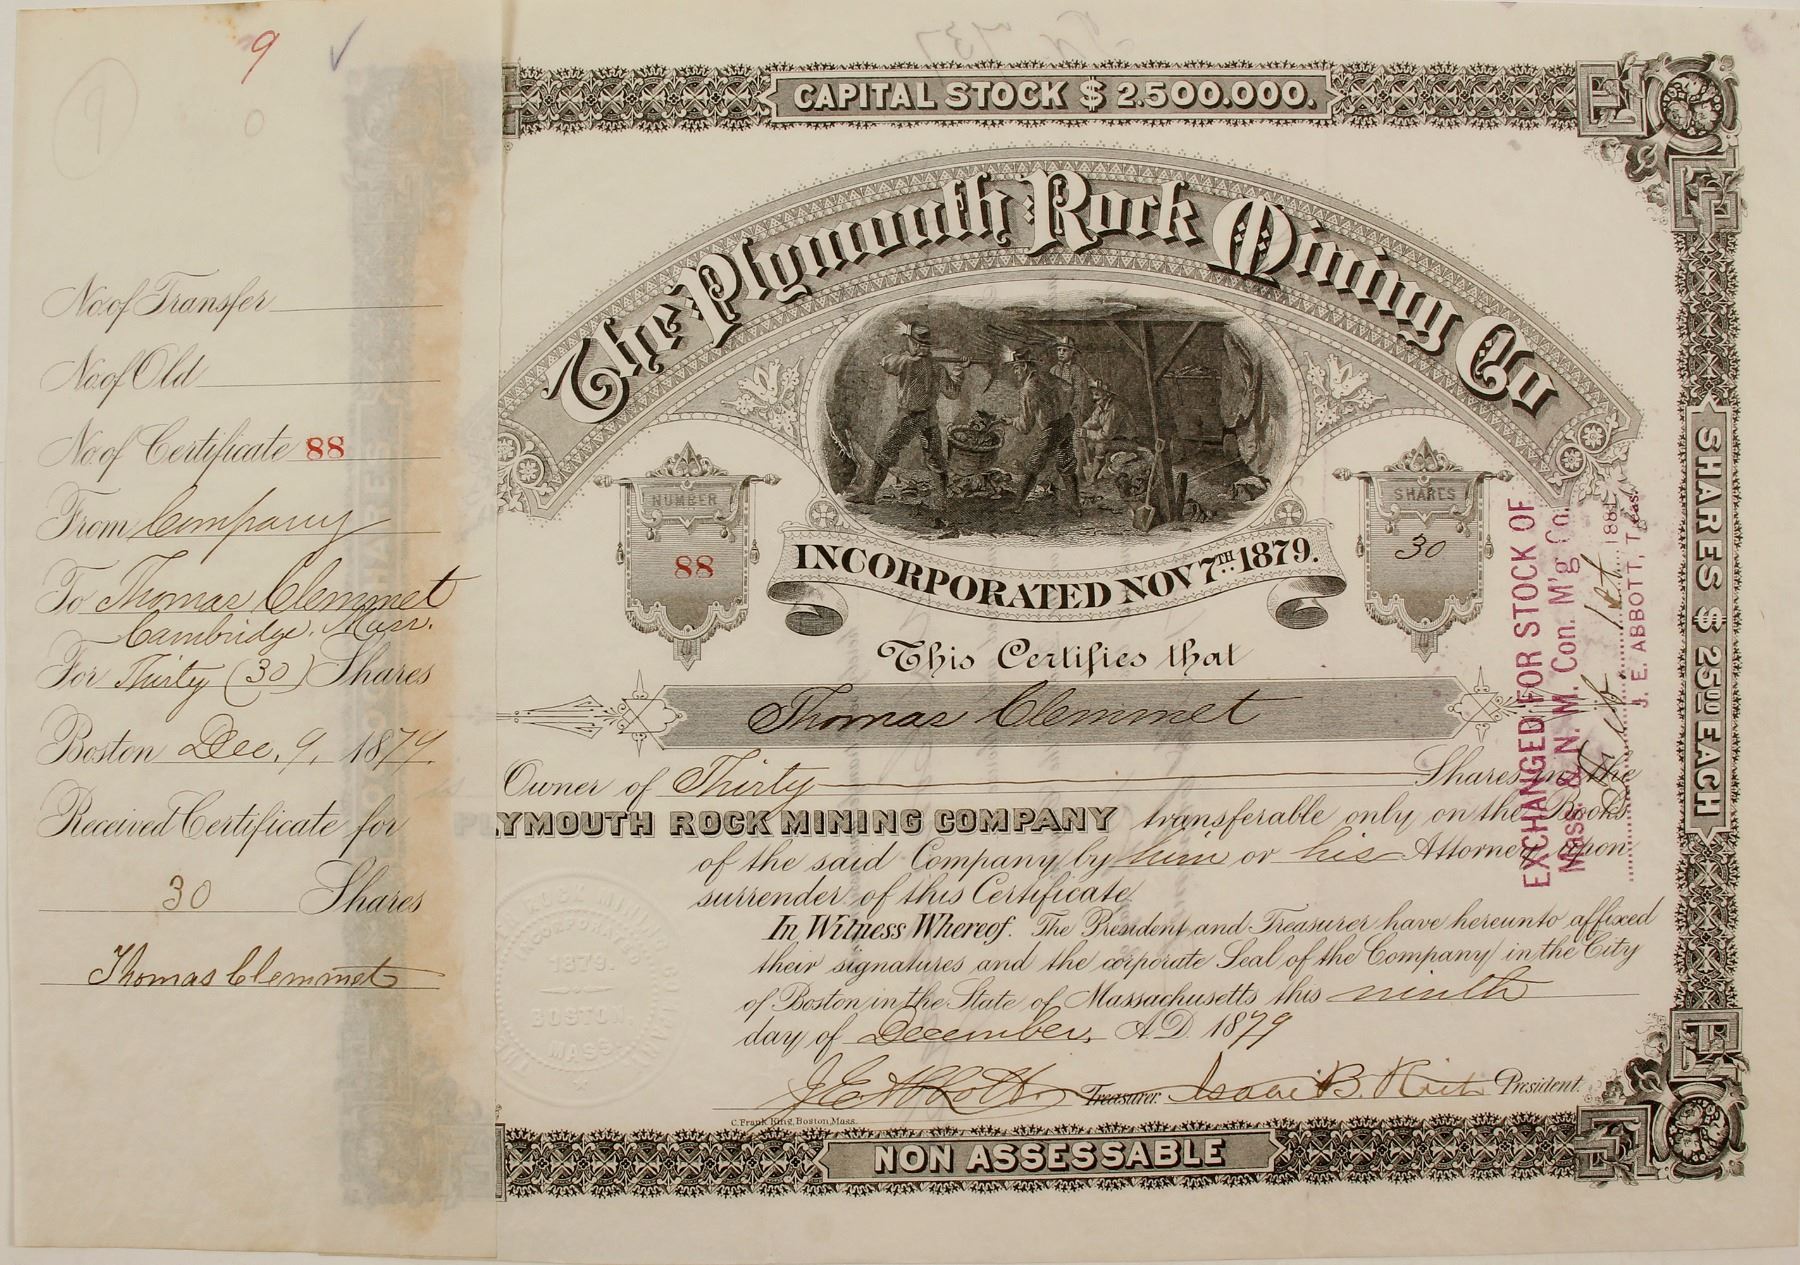 9
No. of Transfer
No. of Old
No. of Certificate 88
From Company
To Thomas Clemmet
Cambridge, Mass.
For Thirty (30) Shares
Boston Dec. 9, 1879.
Received Certificate for
30 Shares
Thomas Clemmet
CAPITAL STOCK $ 2.500.000.
The Plymouth Rock Mining Co
NUMBER
88
SHARES
30
INCORPORATED NOV 7TH 1879.
This Certifies that
Thomas Clemmet
Owner of Thirty Shares in the
PLYMOUTH ROCK MINING COMPANY transferable only on the Books
of the said Company by him or his Attorney upon
surrender of this Certificate.
In Witness Whereof. The President and Treasurer have hereunto affixed
their signatures and the corporate Seal of the Company in the City
of Boston in the State of Massachusetts this ninth
day of December, A.D. 1879
J E Abbott Treasurer. Isaac B. Rich President.
C. Frank King, Boston, Mass.
NON ASSESSABLE
SHARES $ 25.00 EACH
EXCHANGED FOR STOCK OF
Mass. & N. M. Con. M'g Co.
J. E. ABBOTT, Treas.
ROCK MINING
INCORPORATED
1879.
BOSTON,
MASS.